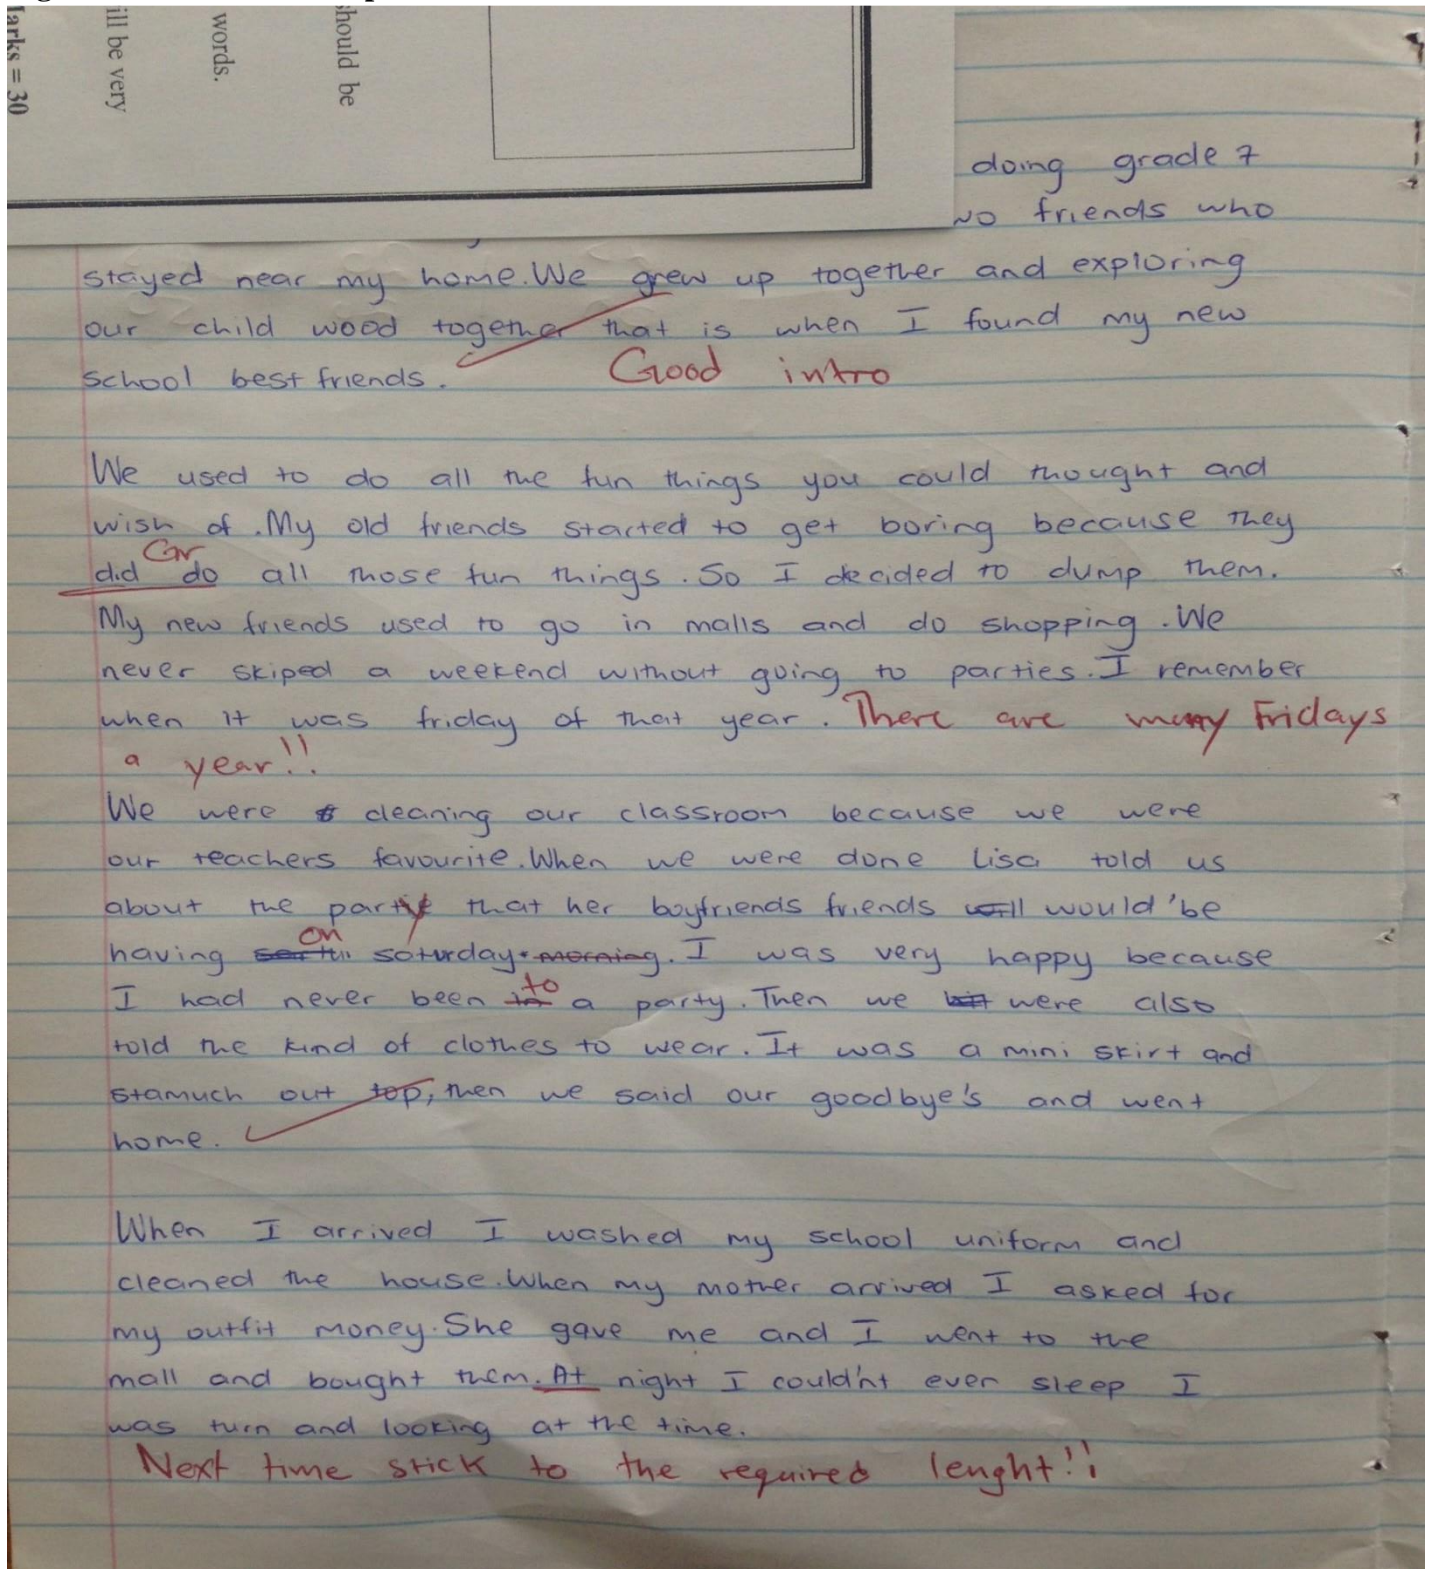 should be
words.
ill be very
arks = 30
doing grade 7
friends who
stayed near my home. We grew up together and exploring
our child wood together that is when I found my new
school best friends. Good intro
We used to do all the fun things you could thought and
wish of. My old friends started to get boring because they
Gr
did do all those fun things. So I decided to dump them.
My new friends used to go in malls and do shopping. We
never skiped a weekend without going to parties. I remember
when it was friday of that year. There are many Fridays
a year!!
We were cleaning our classroom because we were
our teachers favourite. When we were done Lisa told us
about the party that her boyfriends friends would'be
on
having saturday morning. I was very happy because
to
I had never been in a party. Then we were also
told the kind of clothes to wear. It was a mini skirt and
stamuch out top, then we said our goodbye's and went
home.
When I arrived I washed my school uniform and
cleaned the house. When my mother arrived I asked for
my outfit money. She gave me and I went to the
mall and bought them. At night I could'nt even sleep I
was turn and looking at the time.
Next time stick to the required lenght!!